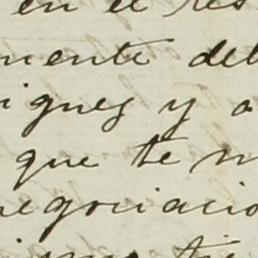 en el res
mente deb
igues y a
que te m
negociacio